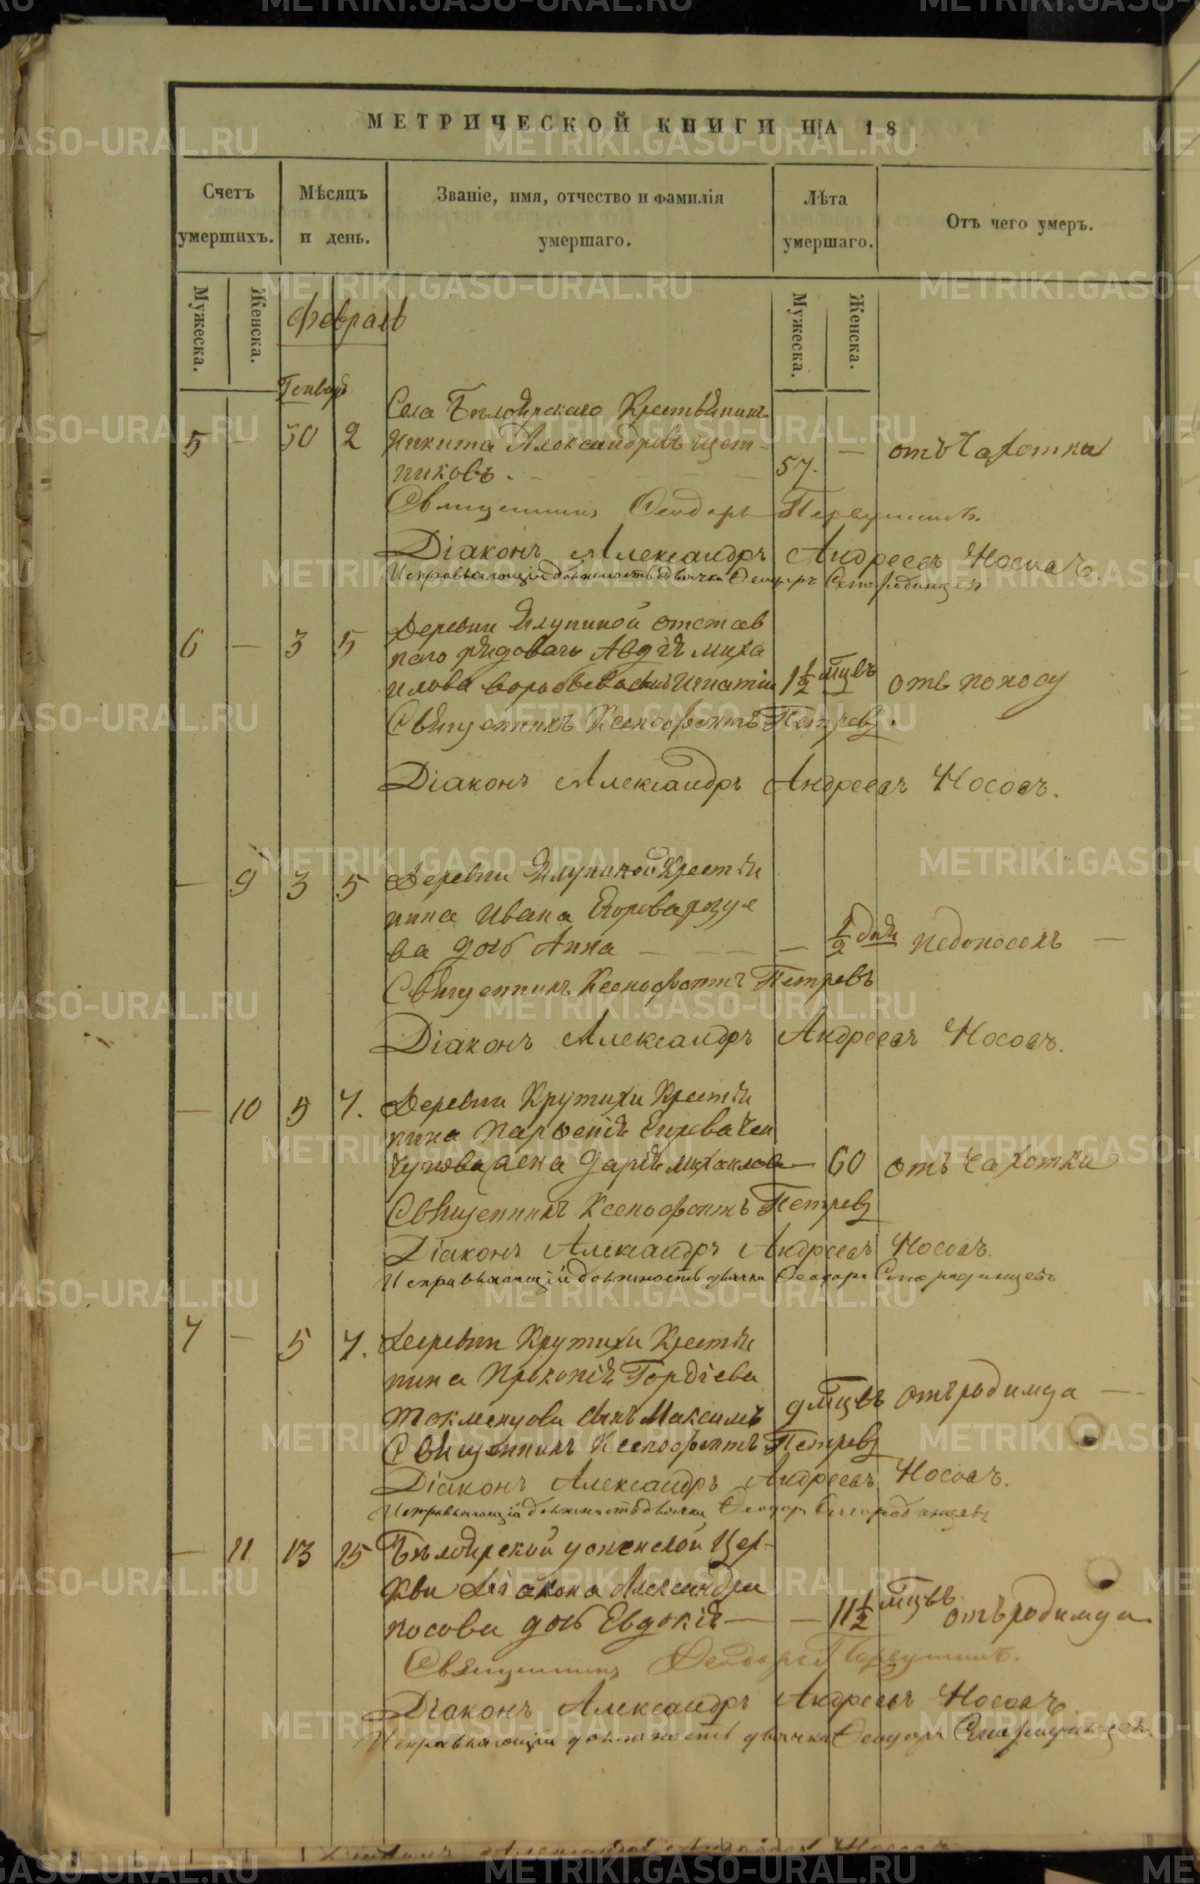 МЕТРИЧЕСКОЙ КНИГИ НА 18
Счетъ умершихъ.
Мѣсяцъ и день.
Званіе, имя, отчество и фамилія умершаго.
Лѣта умершаго.
Отъ чего умеръ.
Мужеска.
Женска.
Мужеска.
Женска.
Февраль
Генварь
Села Бѣлоярскаго Крестьянинъ
5 — 30 2 Никита Александровъ Щет-
никовъ. 57. — отъ Чахотки
Священникъ Феодоръ
Діаконъ Александръ Андреевъ Носовъ.
Исправляющій должность дьячка Феодоръ
Деревни Ялуниной отстав
6 — 3 5 наго рядоваго Авдѣя Миха
илова Воробьева сынъ Игнатій 1 1/2 мцвъ отъ поносу
Священникъ Ксенофонтъ Петровъ.
Діаконъ Александръ Андреевъ Носовъ.
— 9 3 5 Деревни Ялуниной Крестья
нина Ивана Егорова
ва дочь Анна — — 1/2 дня недоносокъ —
Священникъ Ксенофонтъ Петровъ
Діаконъ Александръ Андреевъ Носовъ.
— 10 5 7. Деревни Крутихи Крестья
нина Парфенія
жена Дарья Михайлова — 60 отъ чахотки
Священникъ Ксенофонтъ Петровъ
Діаконъ Александръ Андреевъ Носовъ.
Исправляющій должность дьячка Феодоръ
7 — 5 7. Деревни Крутихи Крестья
нина Прокопія Гордіева
сынъ Максимъ 9 мцвъ отъ родимца —
Священникъ Ксенофонтъ Петровъ
Діаконъ Александръ Андреевъ Носовъ.
Исправляющій должность дьячка Феодоръ
— 11 13 15 Бѣлоярской Успенской Цер-
кви Діакона Александра
Носова дочь Евдокія — — 11 1/2 мцвъ отъ родимца
Священникъ Феодоръ
Діаконъ Александръ Андреевъ Носовъ
Исправляющій должность дьячка Феодоръ
METRIKI.GASO-URAL.RU